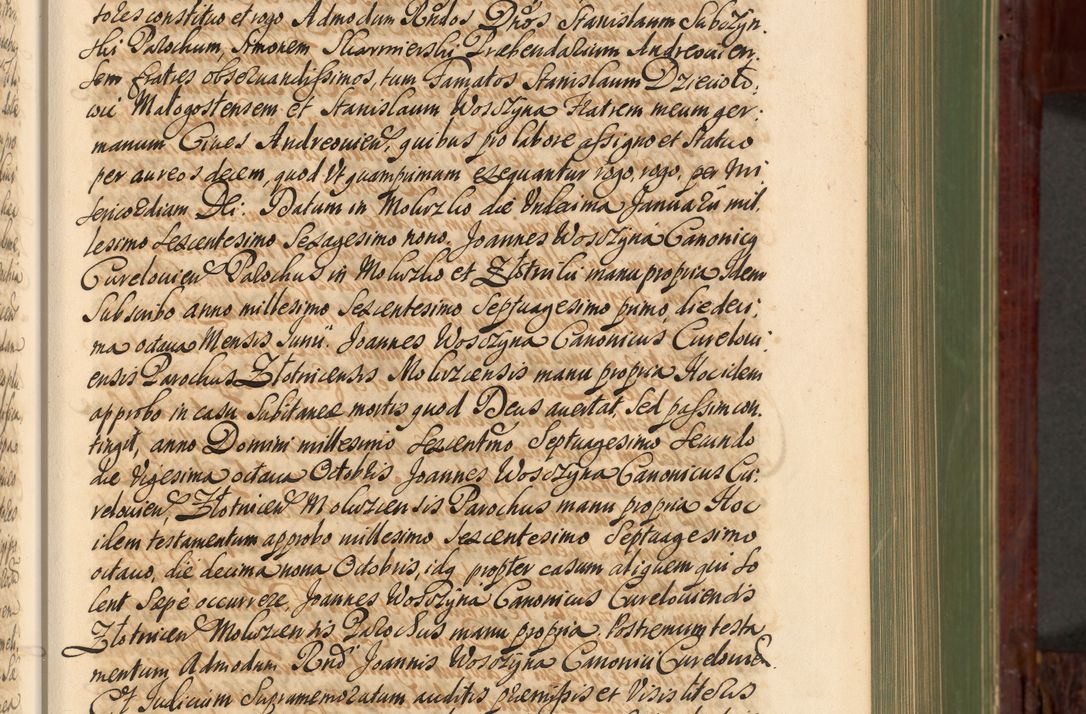 tores constituo et rogo Admodum Rndos Dnos Stanislaum Subczyn
ski Parochum, Simonem Skarmierski Præbendarium Andreouien,
sem fratres obseruandissimos, tum Famatos Stanislaum Dzreioło,
wic Małogostensem et Stanislaum Wosczyna Fratrem meum ger,
manum Ciues Andreouien, quibus pro labore assigno et statuo
per aureos decem, quod Vt quamprimum exequantur rogo, rogo, per mi,
sericordiam Dei. Datum in Mokrzko die Vndecima Januarii mil,
lesimo sexcentesimo sexagesimo nono. Joannes Wosczyna Canonicq
Curelouien Parochus in Mokrzko et Złotniki manu propria. Idem
subscribo anno millesimo sexcentesimo septuagesimo primo, die deci,
ma octaua Mensis Junii. Joannes Wosczyna Canonicus Cureloui,
ensis Parochus Złotnicensis Mokrzcensis manu propria Hoc idem
approbo in casu subitaneæ mortis quod Deus auertat, sed passim con,
tingit, anno Domini millesimo sexcentmo septuagesimo secundo
die Vigesima octaua Octobris Joannes Wosczyna Canonicus Cu,
relouien, Złotnicen Mokrzcensis Parochus manu propria Hoc
idem testamentum approbo millesimo sexcentesimo septuagesimo
octauo, die decima nona Octobris, idq propter casum aliquem qui so
lent sæpe occurrere, Joannes Wosczyna Canonicus Curelouiensis
Złotnicen Mokrzcensis Parochus manu propria. Postremum testa
mentum Admodum Rnd Joannis Wosczyna Canonici Curelouien
Et Iudicium supramemoratum auditis præmissis et Visis literis